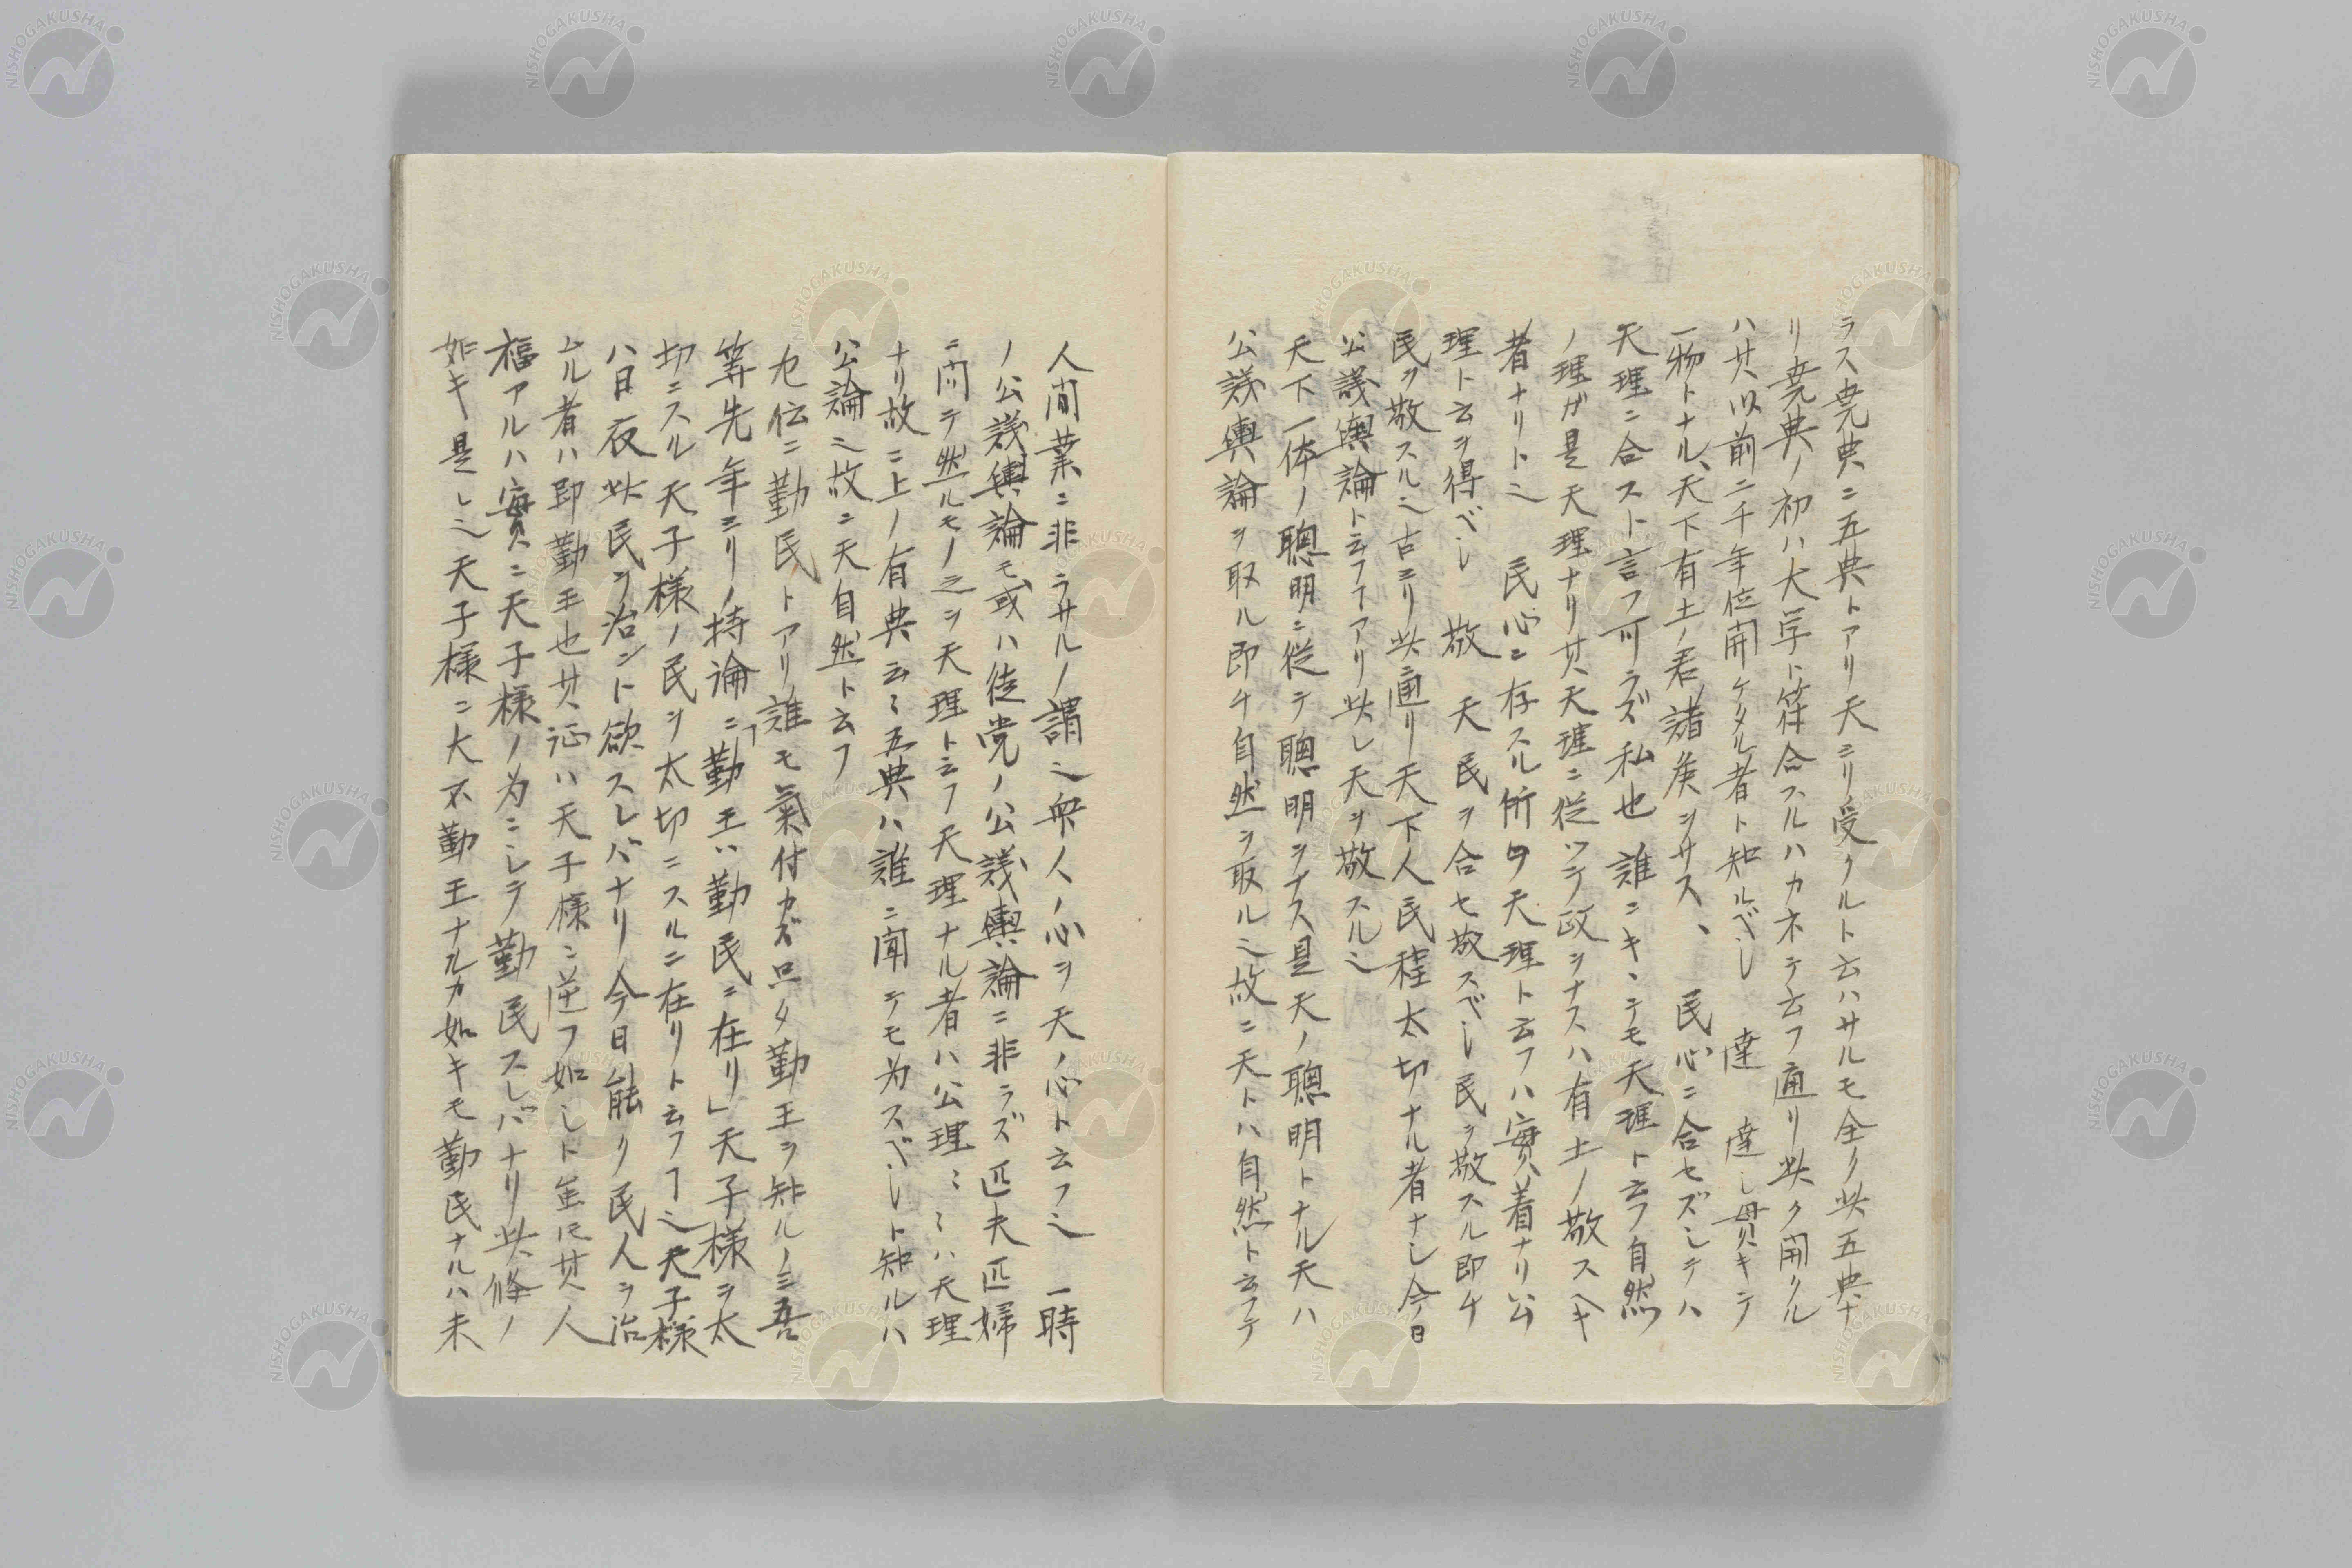 ラス堯典ニ五典トアリ天ヨリ受クルト云ハサルモ全ク此五典ナ
リ堯典ノ初ハ大学ト符合スルハカネテ云フ通リ此ク開クル
ハ其以前二千年位開ケタル者ト知ルベシ 達 達シ貫キテ
一物トナル、天下有土ノ君諸侯ヲサス、 民心ニ合セズシテハ
天理ニ合スト言フ可ラズ私也 誰ニキヽテモ天理ト云フ自然
ノ理ガ是天理ナリ其天理ニ従ツテ政ヲナスハ有土ノ敬スヘキ
者ナリト也 民心ニ存スル所ヲ天理ト云フハ實着ナリ公
理ト云ヲ得ベシ 敬 天民ヲ合セ敬スベシ民ヲ敬スル即チ
民ヲ敬スル也古ヨリ此通リ天下人民程太切ナル者ナシ今日
公議輿論ト云フヿアリ此レ天ヲ敬スル也
天下一体ノ聰明ニ従テ聰明ヲナス是天ノ聰明トナル天ハ
公議輿論ヲ取ル即チ自然ヲ取ル也故ニ天トハ自然ト云フテ
人間業ニ非ラサルノ謂也衆人ノ心ヲ天ノ心ト云フ也 一時
ノ公議輿論モ或ハ徒党ノ公議輿論ニ非ラズ匹夫匹婦
ニ問テ然ルモノ之ヲ天理ト云フ天理ナル者ハ公理〻〻ハ天理
ナリ故ニ上ノ有典云〻五典ハ誰ニ聞テモ為スベシト知ルハ
公論也故ニ天自然ト云フ
左伝ニ勤民トアリ誰モ氣付カズ只タ勤王ヲ知ルノミ吾
等先年ヨリノ持論ニ「勤王ハ勤民ニ在リ」天子様ヲ太
切ニスル天子様ノ民ヲ太切ニスルニ在リト云フヿ也天子様
ハ日夜此民ヲ治ント欲スレバナリ今日能ク民人ヲ治
ムル者ハ即勤王也其証ハ天子様ニ逆フ如シト雖𪜈其人
福アルハ實ニ天子様ノ為ニシテ勤民スレバナリ此條ノ
如キ是レ也天子様ニ大不勤王ナルカ如キモ勤民ナルハ未